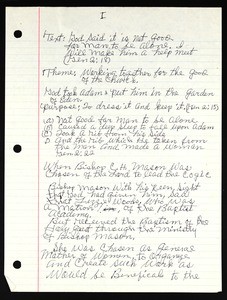 I
Text: God said it is not good
for man to be alone. I
will make him a help meet
(Gen 2:18)
Theme: Working together for the good
of the Church.
God took Adam & put him in the Garden
of Eden.
Purpose; To dress it and keep it, (Gen 2:15)
(a) Not good for man to be alone
(b) Caused a deep sleep to fall upon Adam
(c) Took a rib from his side
(d) And the rib which was taken
from the man made he a woman
Gen 2:22
When Bishop C. H. Mason was
Chosen of the Lord to lead the C.O.G.I.C.
Bishop Mason with his keen sight
that God had given him, said
Lizzie Woods, who was
Matron of the Baptist
Academy.
But received the Baptism of the
Holy Ghost through the Ministry
of Bishop Mason.
She was Chosen as General
Mother of Women, to organize
and Create such work as
would be Beneficals to the